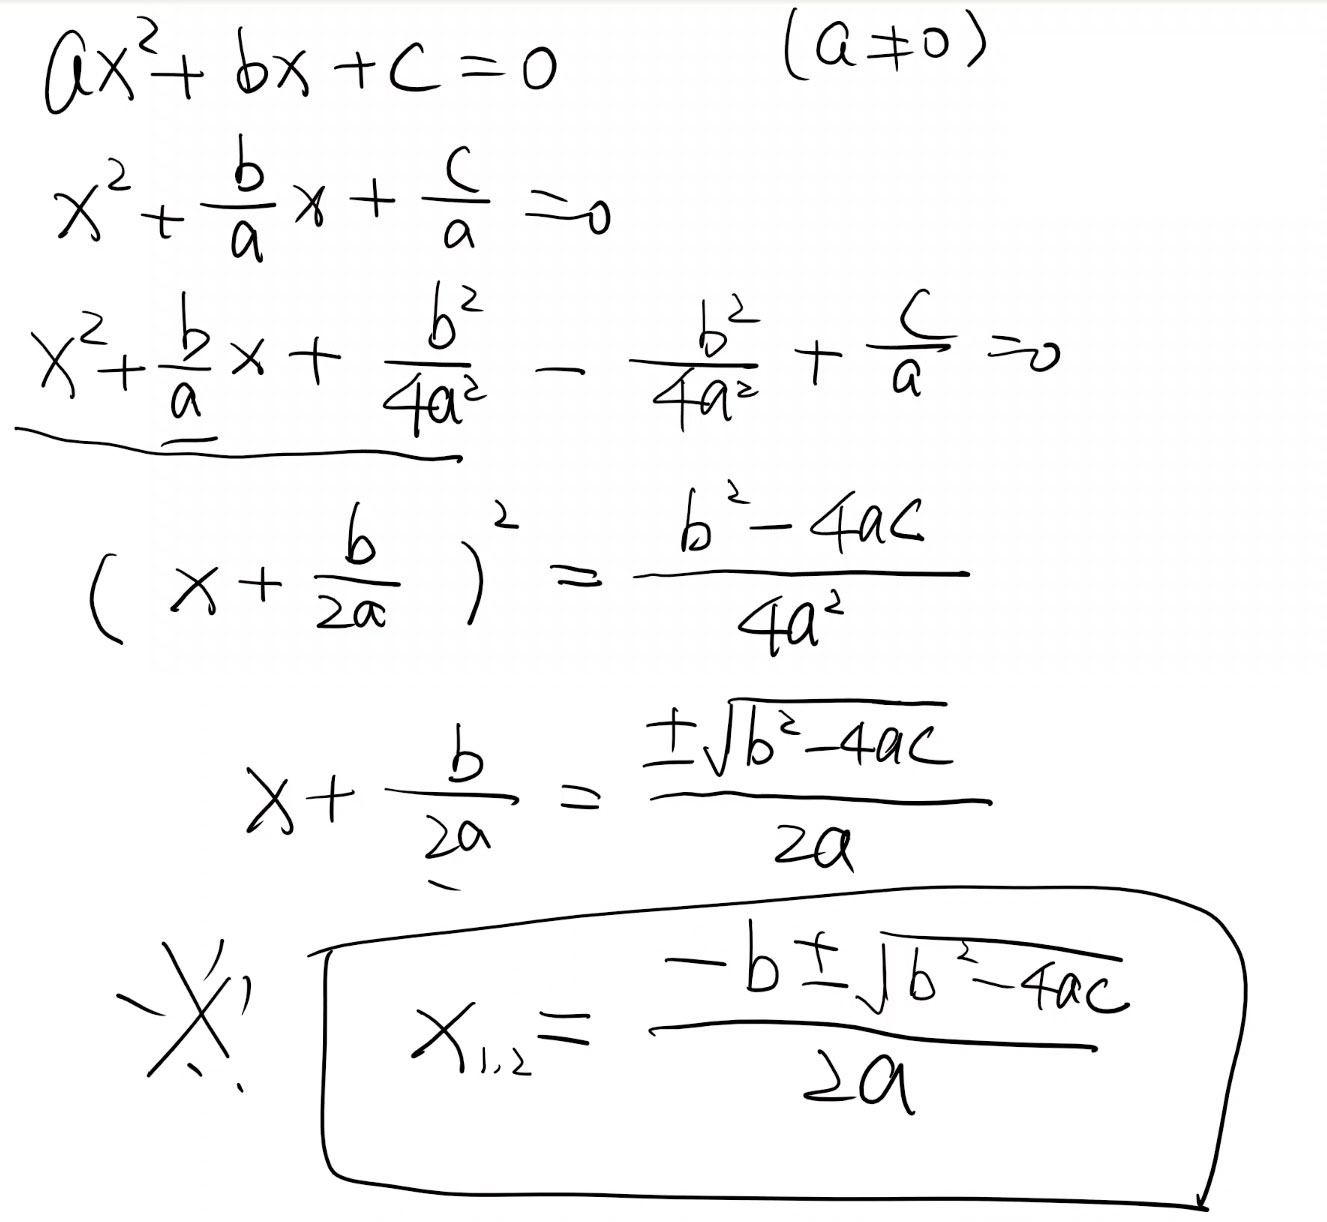 ax² + bx + c = 0 (a ≠ 0)
x² + b/a x + c/a = 0
x² + b/a x + b²/4a² - b²/4a² + c/a = 0
(x + b/2a)² = b² - 4ac / 4a²
x + b/2a = ±√(b² - 4ac) / 2a
※ x₁,₂ = -b ± √(b² - 4ac) / 2a